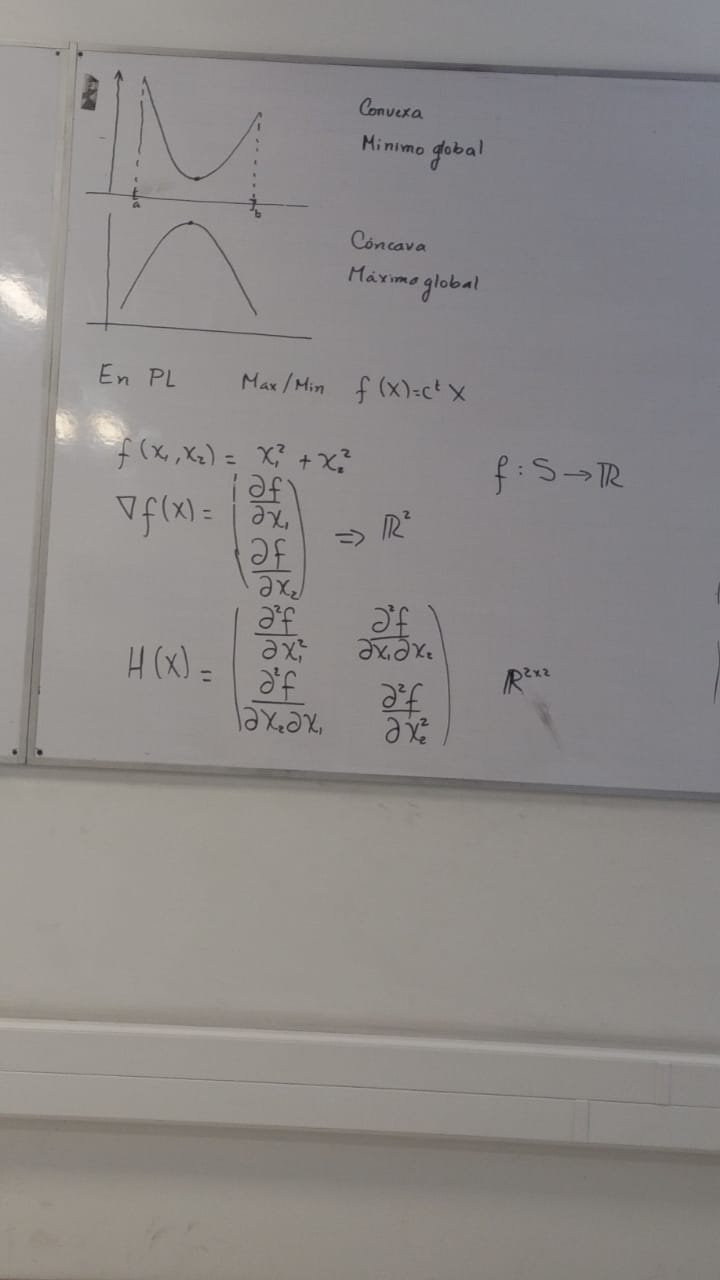 Convexa
Minimo global
a b
Cóncava
Máximo global
En PL Max/Min f(x)=cᵗ x
f(x₁,x₂) = x₁² + x₂² f: S → ℝ
∇f(x) = ( ∂f/∂x₁ ∂f/∂x₂ ) ⇒ ℝ²
H(x) = ( ∂²f/∂x₁² ∂²f/∂x₁∂x₂
∂²f/∂x₂∂x₁ ∂²f/∂x₂² ) ℝ²ˣ²